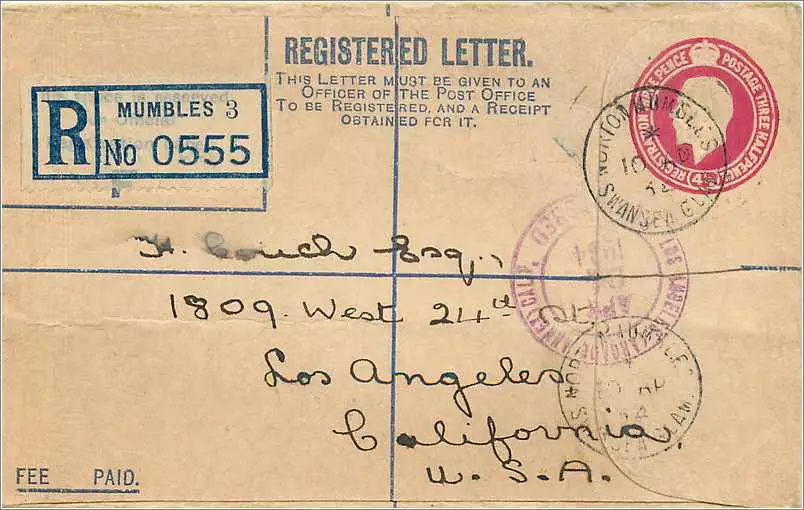 REGISTERED LETTER.
THIS LETTER MUST BE GIVEN TO AN
OFFICER OF THE POST OFFICE
TO BE REGISTERED, AND A RECEIPT
OBTAINED FOR IT.
R
MUMBLES 3
No 0555
POSTAGE THREE HALFPENCE
REGISTRATION PENCE
NORTON MUMBLES
SWANSEA GLAM
10
LOS ANGELES
(ANNEX) CALIF.
1934
APR
MUMBLES
10 AP
34
SWANSEA GLAM.
H. Couch Esq.,
1809. West 24th
Los Angeles
California
U. S. A.
FEE PAID.